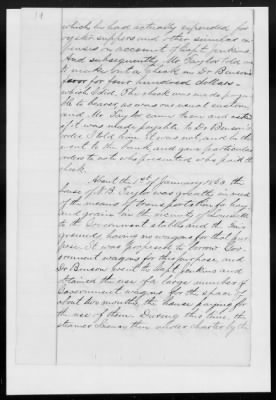 14
which he had actually expended for
oyster suppers and other similar ex
penses on account of Capt. Jenkins.
And subsequently Mr. Taylor told me
to make out a check on Dr Benson's
favor for four hundred dollars -
which I did. The check was made paya
ble to bearer, as was our usual custom
and Mr Taylor came then and asked
if it was made payable to Dr. Benson's
order I told him it was not and he then
went to the bank, and gave particular
orders to note who presented who paid the
check.
About the 1st of January 1863, the
house of B. Taylor was greatly in need
of the means of transportation for hay
and grain in the vicinity of Louisville
to the Government stables and the
grounds, having no wagons for that pur
pose. It was proposed to borrow Gov
ernment wagons for this purpose, and
Dr Benson went to Capt Jenkins and
obtained the use of a large number of
Government wagons for the space of
about two months, the house paying for
the use of them. During this time, the
steamer then under charter by the